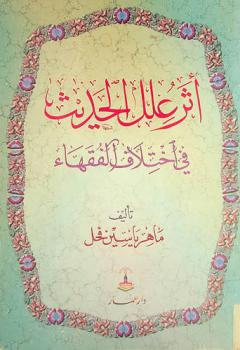 أثر علل الحديث
في اختلاف الفقهاء
تأليف
ماهر ياسين فحل
دار عمار